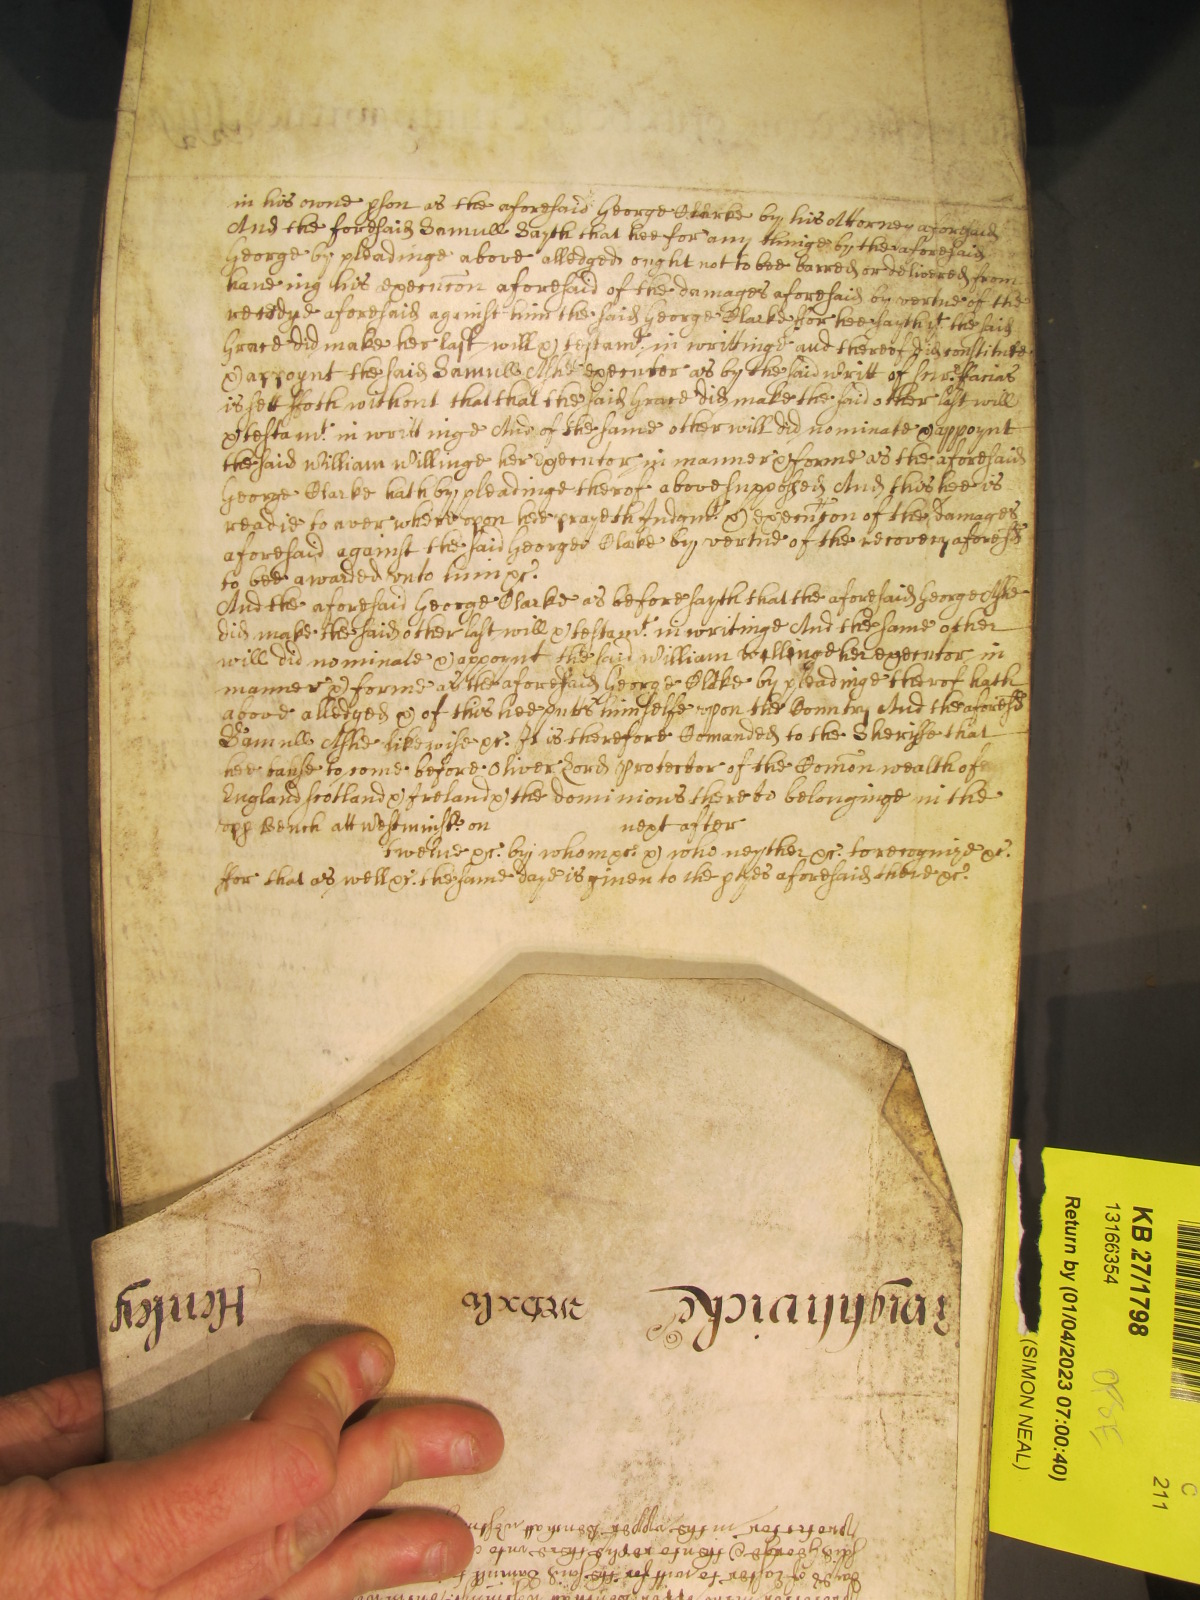 in his owne pson as the aforesaid George Clarke by his Attorney aforesaid
And the foresaid Samuell Sayth that hee for any thinge by the aforesaid
George by pleadinge above alledged ought not to bee barred or delivered from
haveing his execucon aforesaid of the damages aforesaid by vertue of the
aforesaid against him the said George Clarke for hee sayth yt the said
Grace did make her last will & testamt. in writtinge and thereof did constitute
& appoynt the said Samuell Ashe executor as by the said writt of facias
is sett forth without that that the said Grace did make the said other last will
& testamt. in writtinge And of the same other will did nominate & appoynt
the said William Willinge her executor in manner & forme as the aforesaid
George Clarke hath by pleadinge therof above supposed And this hee is
readie to aver whereupon hee prayeth Judgmt. & execucon of the Damages
aforesaid against the said George Clarke by vertue of the recovery aforesd
to bee awarded unto him &c.
And the aforesaid George Clarke as before sayth that the aforesaid George Ashe
did make the said other last will & testamt. in writinge And the same other
will did nominate & appoynt the said William Willinge her executor in
manner & forme as the aforesaid George Clake by pleadinge therof hath
above alledged & of this hee putts himselfe upon the Country And the aforesd
Samuell Ashe likewise &c. It is therefore Comanded to the Sheriffe that
hee cause to come before Oliver Lord Protector of the Comon wealth of
England Scotland & Ireland & the dominions thereto belonginge in the
upp Bench att Westminstr on next after
twelve &c. by whom &c. & who neyther &c. to recognize &c.
for that as well &c. the same daye is given to the ptyes aforesaid there &c.
Wightwicke
Henley
KB 27/1798
13166354
Return by (01/04/2023 07:00:40)
(SIMON NEAL)
C
211